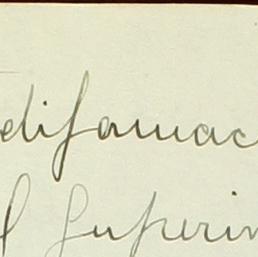 difamac
l Superin